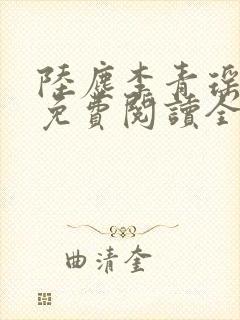 陸塵李青瑤
免費閱讀全
曲清奎